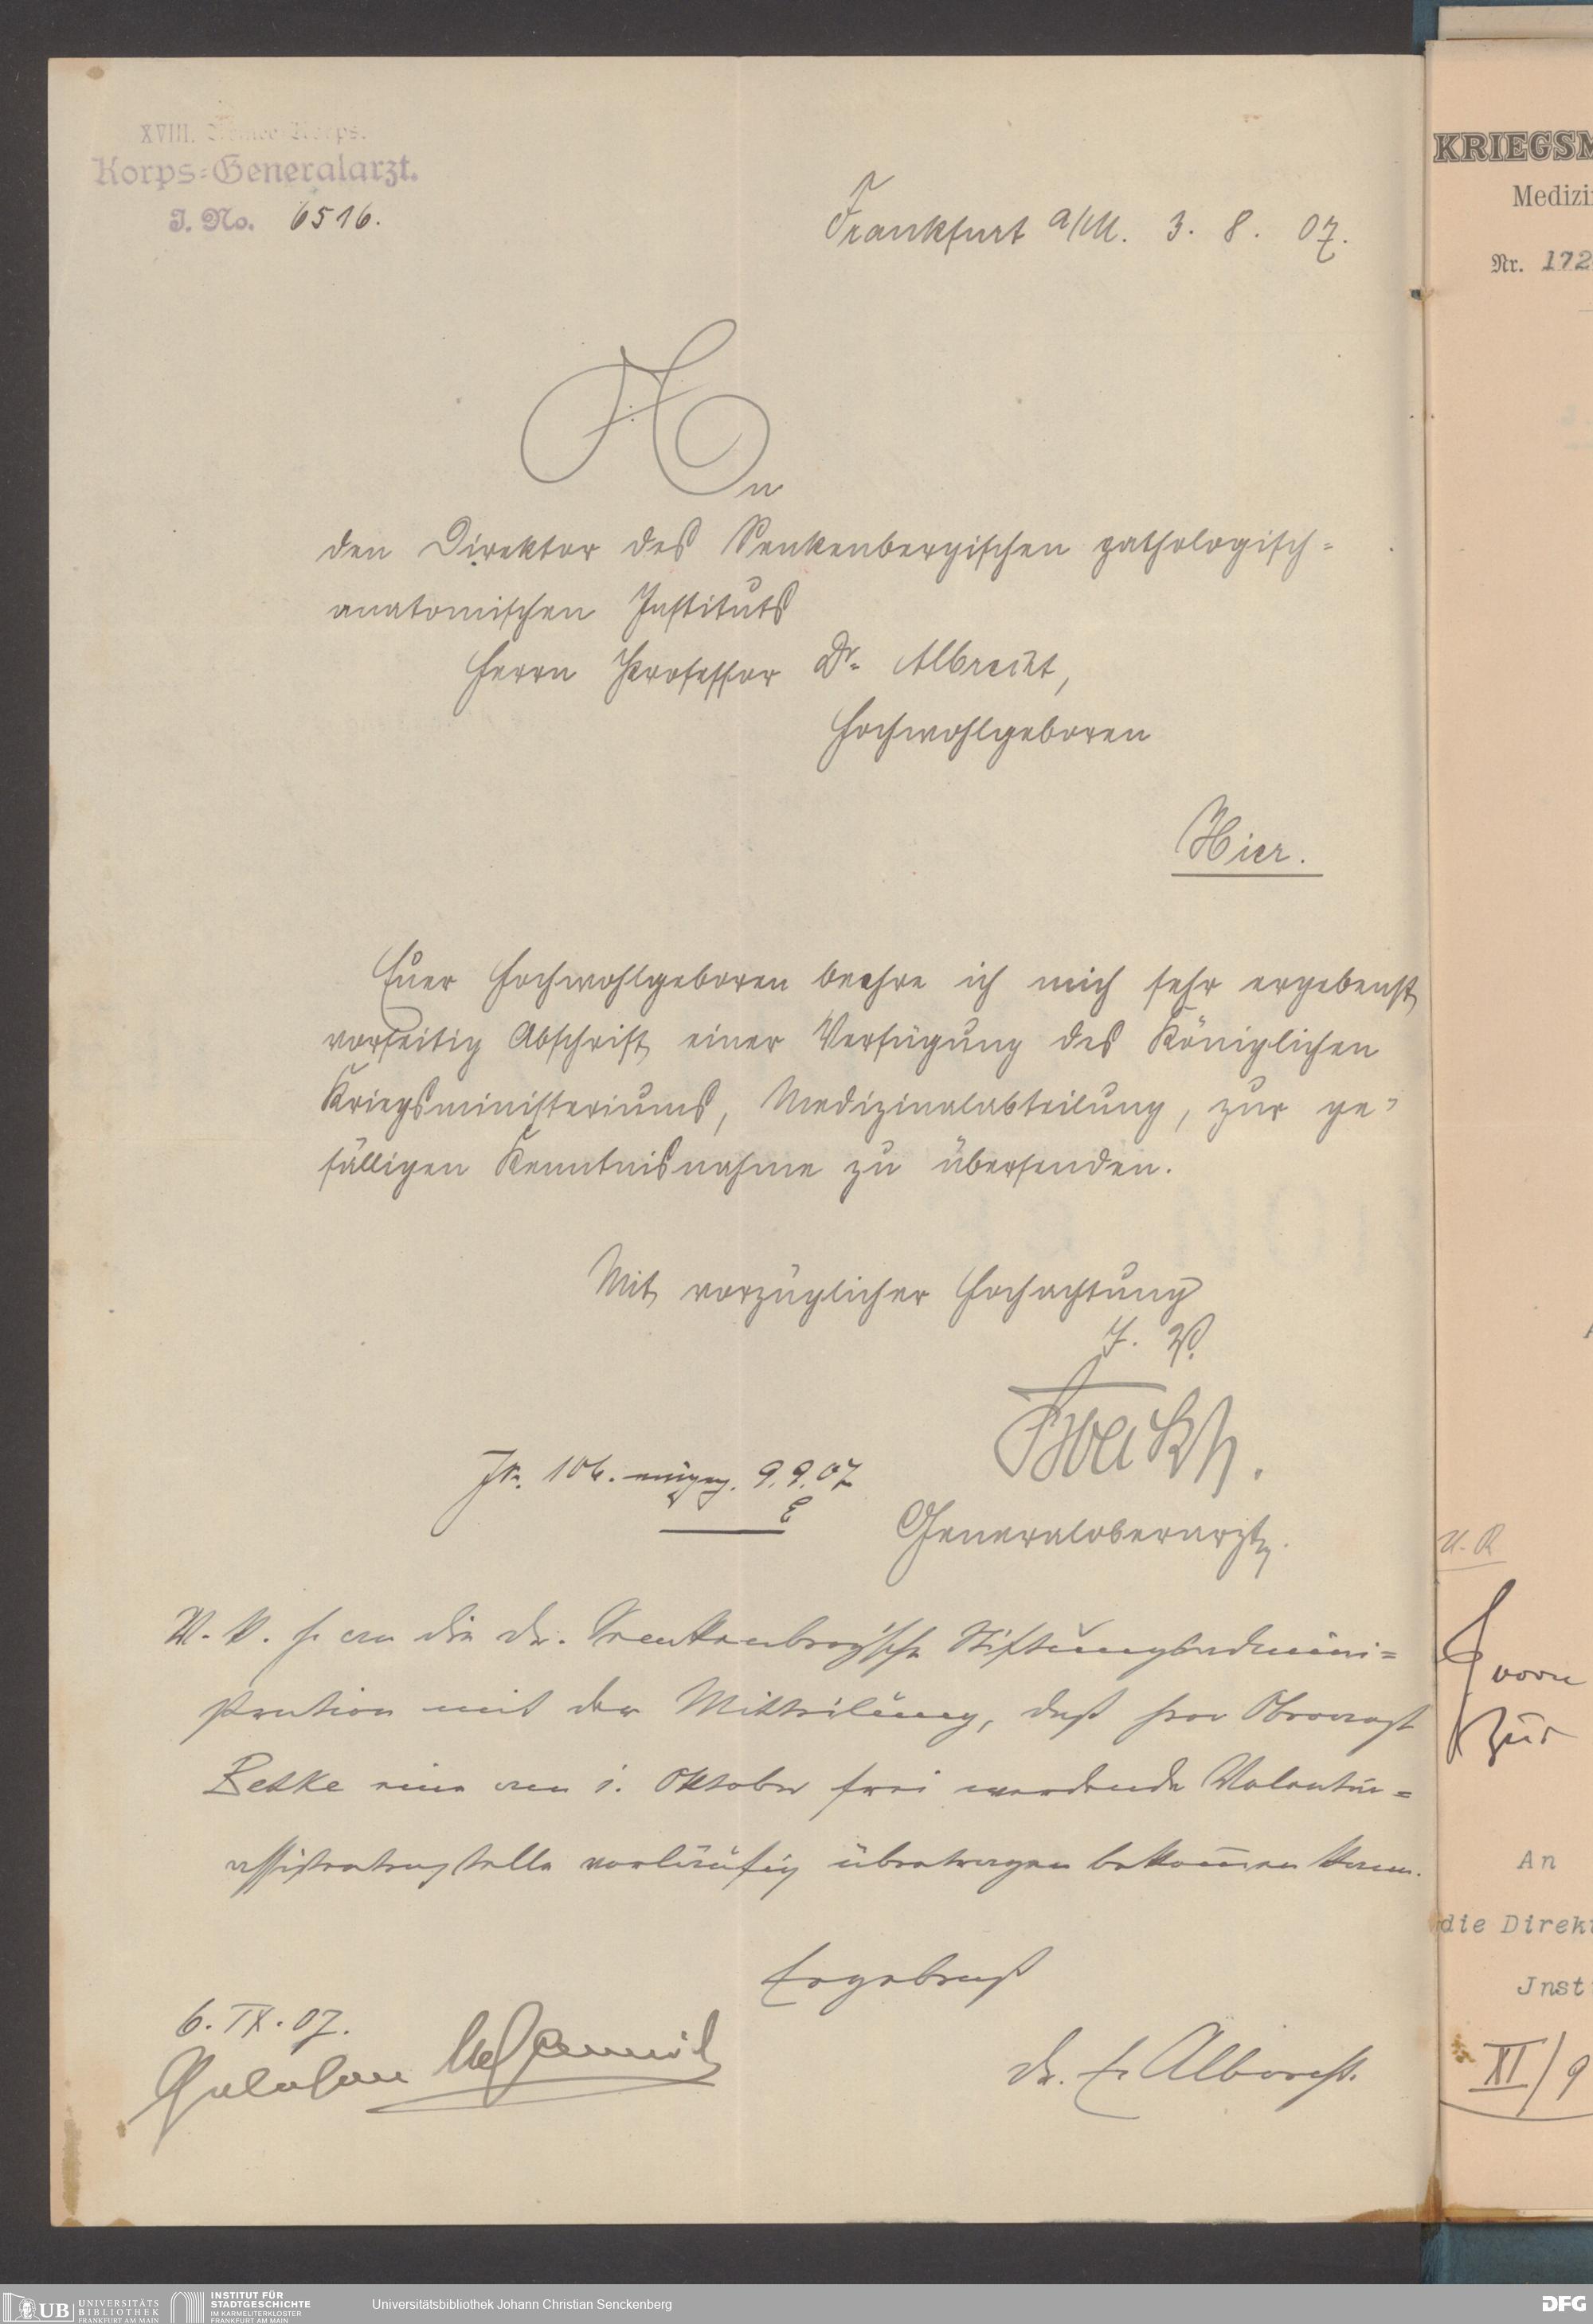 XVIII. Armee-Korps.
Korps-Generalarzt.
J. No. 6516.
Frankfurt a/M. 3. 8. 07.
An
den Direktor des Senkenbergischen pathologisch-
anatomischen Instituts
Herrn Professor Dr. Albrecht,
Hochwohlgeboren
Hier.
Euer Hochwohlgeboren beehre ich mich sehr ergebenst
vorseitig Abschrift einer Verfügung des Königlichen
Kriegsministeriums, Medizinalabteilung, zur ge-
fälligen Kenntnisnahme zu übersenden.
Mit vorzüglicher Hochachtung
J. V.
Generaloberarzt.
106. eingeg. 9.9.07
an die Dr. Senckenberg'sche Stiftungsadmini-
stration mit der Mitteilung, daß Herr Oberarzt
Betke eine am 1. Oktober frei werdende Volontär-
assistentenstelle vorläufig übertragen bekommen kann.
Ergebenst
6. IX. 07.
Dr. E. Albrecht.
KRIEGSM
Medizi
Nr. 172
U. R
vorn
Zur
An
die Direkt
Jnst
XI/9
UB UNIVERSITÄTS
BIBLIOTHEK
FRANKFURT AM MAIN
INSTITUT FÜR
STADTGESCHICHTE
IM KARMELITERKLOSTER
FRANKFURT AM MAIN
Universitätsbibliothek Johann Christian Senckenberg
DFG